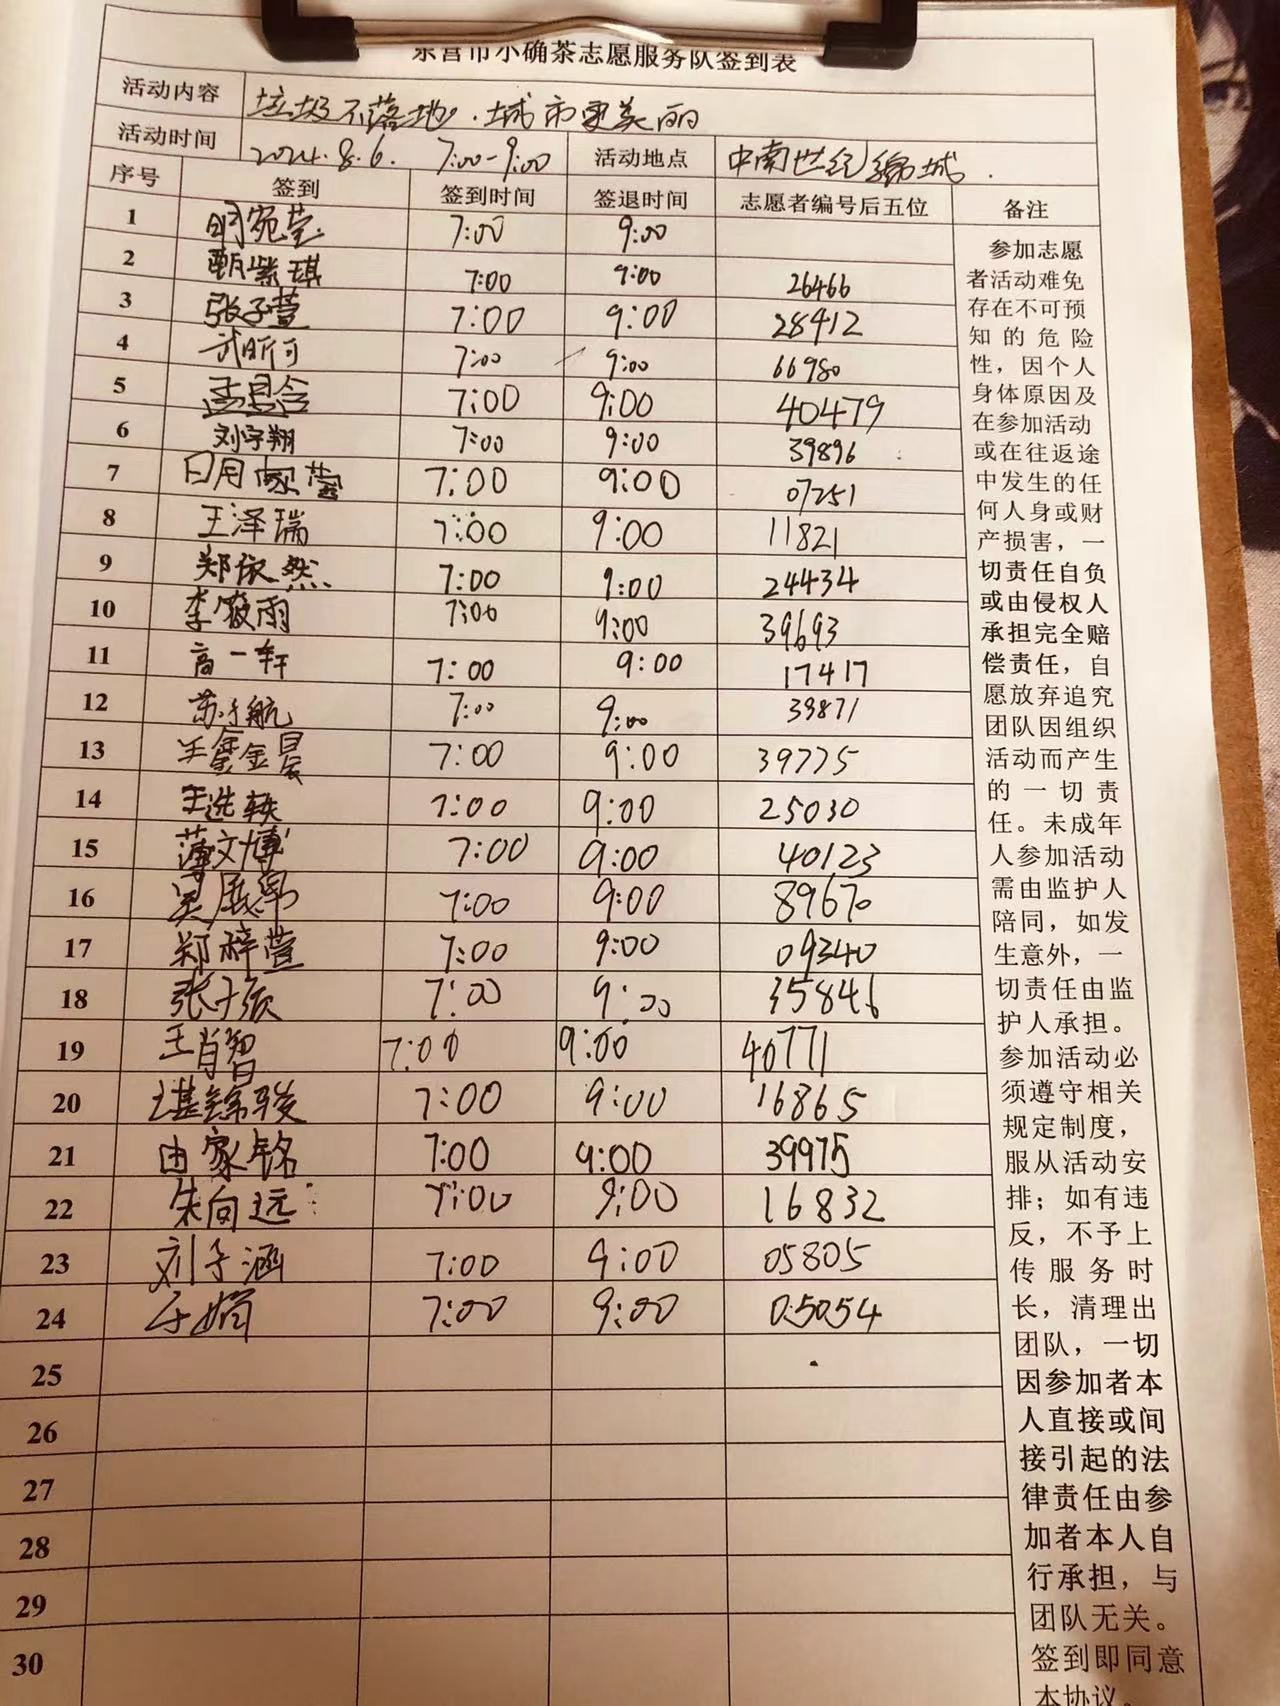 东营市小确茶志愿服务队签到表
活动内容 垃圾不落地.城市更美丽
活动时间 2024.8.6. 7:00-9:00 活动地点 中南世纪锦城.
序号 签到 签到时间 签退时间 志愿者编号后五位 备注
1 明宛莹 7:00 9:00
2 甄紫琪 7:00 9:00 26466
3 张子萱 7:00 9:00 28412
4 武昕可 7:00 9:00 66980
5 7:00 9:00 40479
6 刘宇翔 7:00 9:00 39896
7 7:00 9:00 07251
8 王泽瑞 7:00 9:00 11821
9 郑依然 7:00 9:00 24434
10 李筱雨 7:00 9:00 39693
11 高一轩 7:00 9:00 17417
12 航 7:00 9:00 39871
13 7:00 9:00 39775
14 王选轶 7:00 9:00 25030
15 薄文博 7:00 9:00 40123
16 吴 7:00 9:00 89670
17 郑梓萱 7:00 9:00 09340
18 张 7:00 9:00 35846
19 王肖智 7:00 9:00 40771
20 7:00 9:00 16865
21 由家铭 7:00 9:00 39975
22 朱向远 7:00 9:00 16832
23 刘子涵 7:00 9:00 05805
24 于娟 7:00 9:00 05054
25
26
27
28
29
30
参加志愿
者活动难免
存在不可预
知的危险
性，因个人
身体原因及
在参加活动
或在往返途
中发生的任
何人身或财
产损害，一
切责任自负
或由侵权人
承担完全赔
偿责任，自
愿放弃追究
团队因组织
活动而产生
的一切责
任。未成年
人参加活动
需由监护人
陪同，如发
生意外，一
切责任由监
护人承担。
参加活动必
须遵守相关
规定制度，
服从活动安
排；如有违
反，不予上
传服务时
长，清理出
团队，一切
因参加者本
人直接或间
接引起的法
律责任由参
加者本人自
行承担，与
团队无关。
签到即同意
本协议。